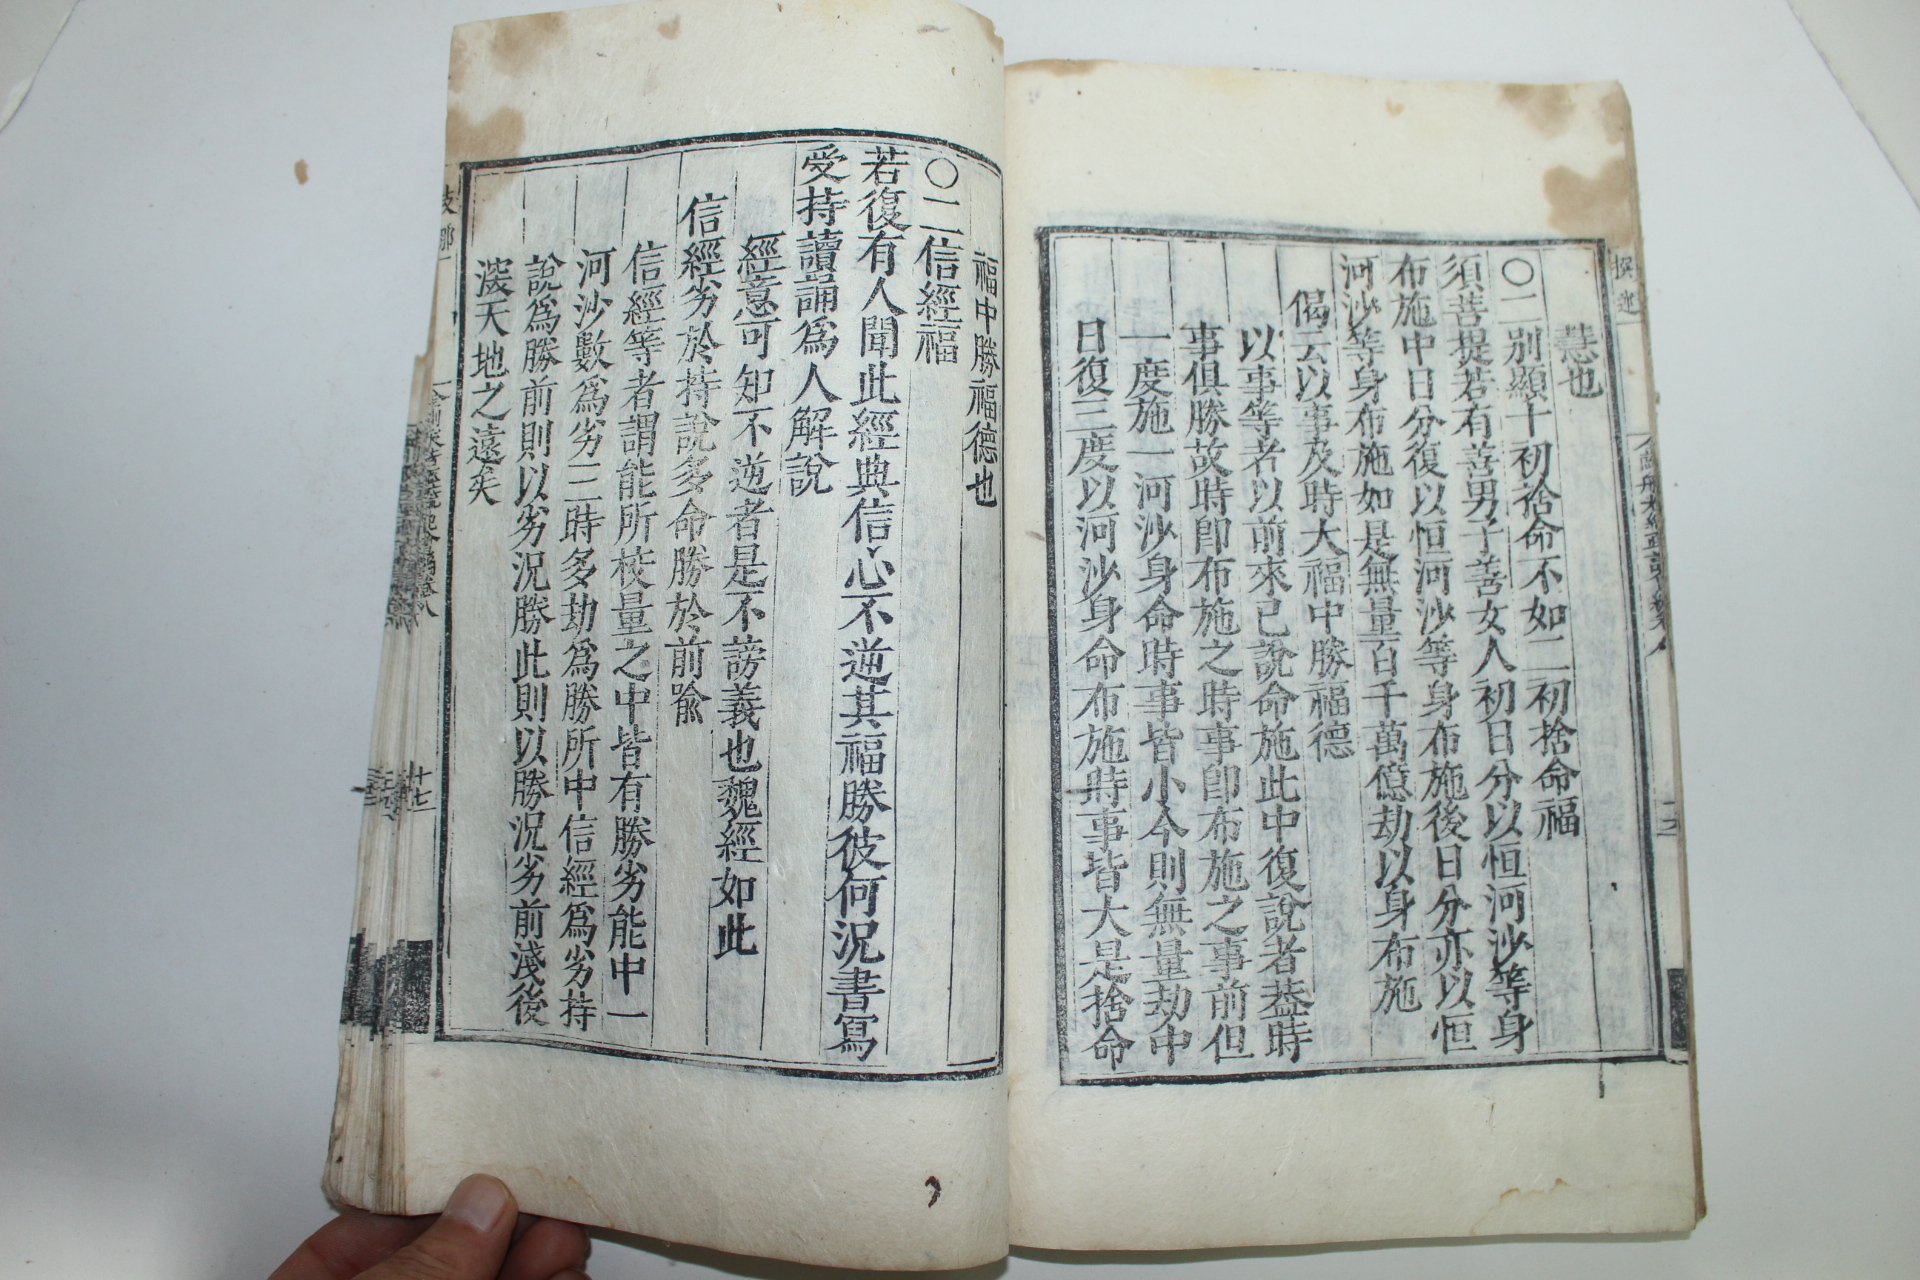 慧也
○二別顯十初捨命不如二初捨命福
須菩提若有善男子善女人初日分以恒河沙等身
布施中日分復以恒河沙等身布施後日分亦以恒
河沙等身布施如是無量百千萬億劫以身布施
偈云以事及時大福中勝福德
以事等者以前來已說命施此中復說者葢時
事俱勝故時卽布施之時事卽布施之事前但
一度施一河沙身命時事皆小今則無量劫中
日復三度以河沙身命布施時事皆大是捨命
福中勝福德也
○二信經福
若復有人聞此經典信心不逆其福勝彼何況書寫
受持讀誦爲人解說
經意可知不逆者是不謗義也魏經如此
信經劣於持說多命勝於前喩
信經等者謂能所校量之中皆有勝劣能中一
河沙數爲劣三時多劫爲勝所中信經爲劣持
說爲勝前則以劣況勝此則以勝況劣前淺後
深天地之遠矣
十七